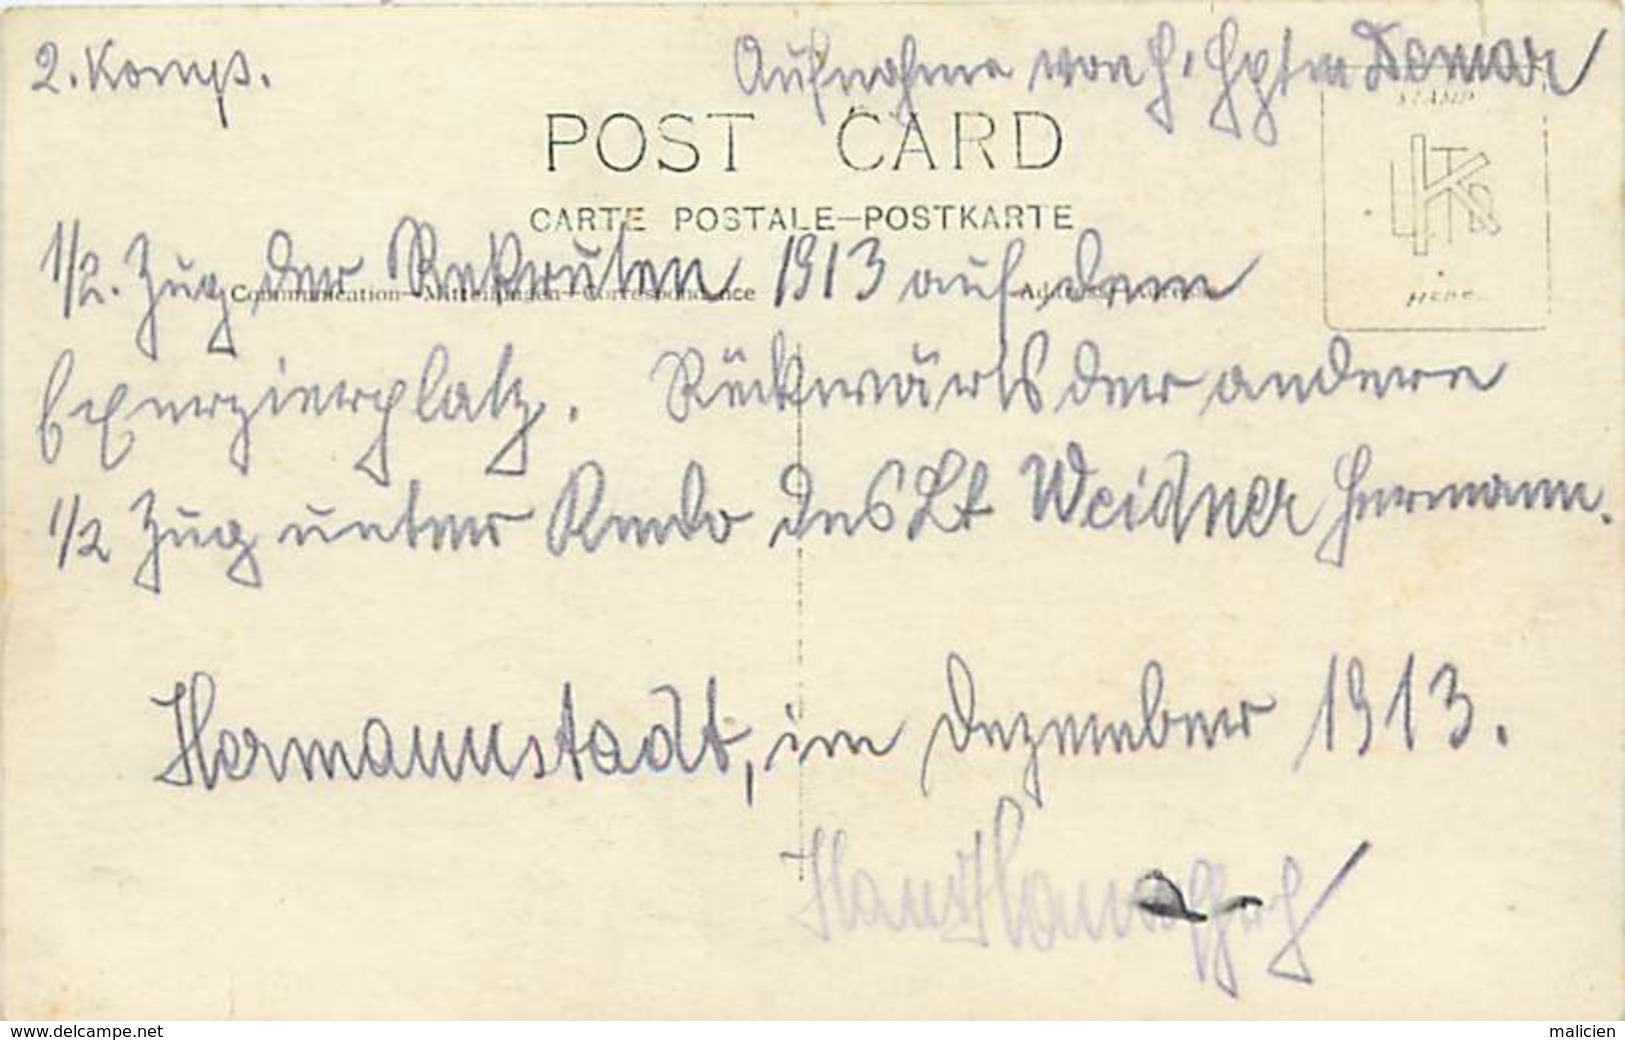 2. Komp.
Aufnahme von H. Hptm Demar
POST CARD
CARTE POSTALE—POSTKARTE
STAMP
HERE
Communication—Mitteilungen—Correspondance
1/2. Zug der Rekruten 1913 auf dem
Exerzierplatz. Rückwärts der andere
1/2 Zug unter Kmdo des Lt Weidner Hermann.
Hermannstadt, im Dezember 1913.
Hans
www.delcampe.net
malicien